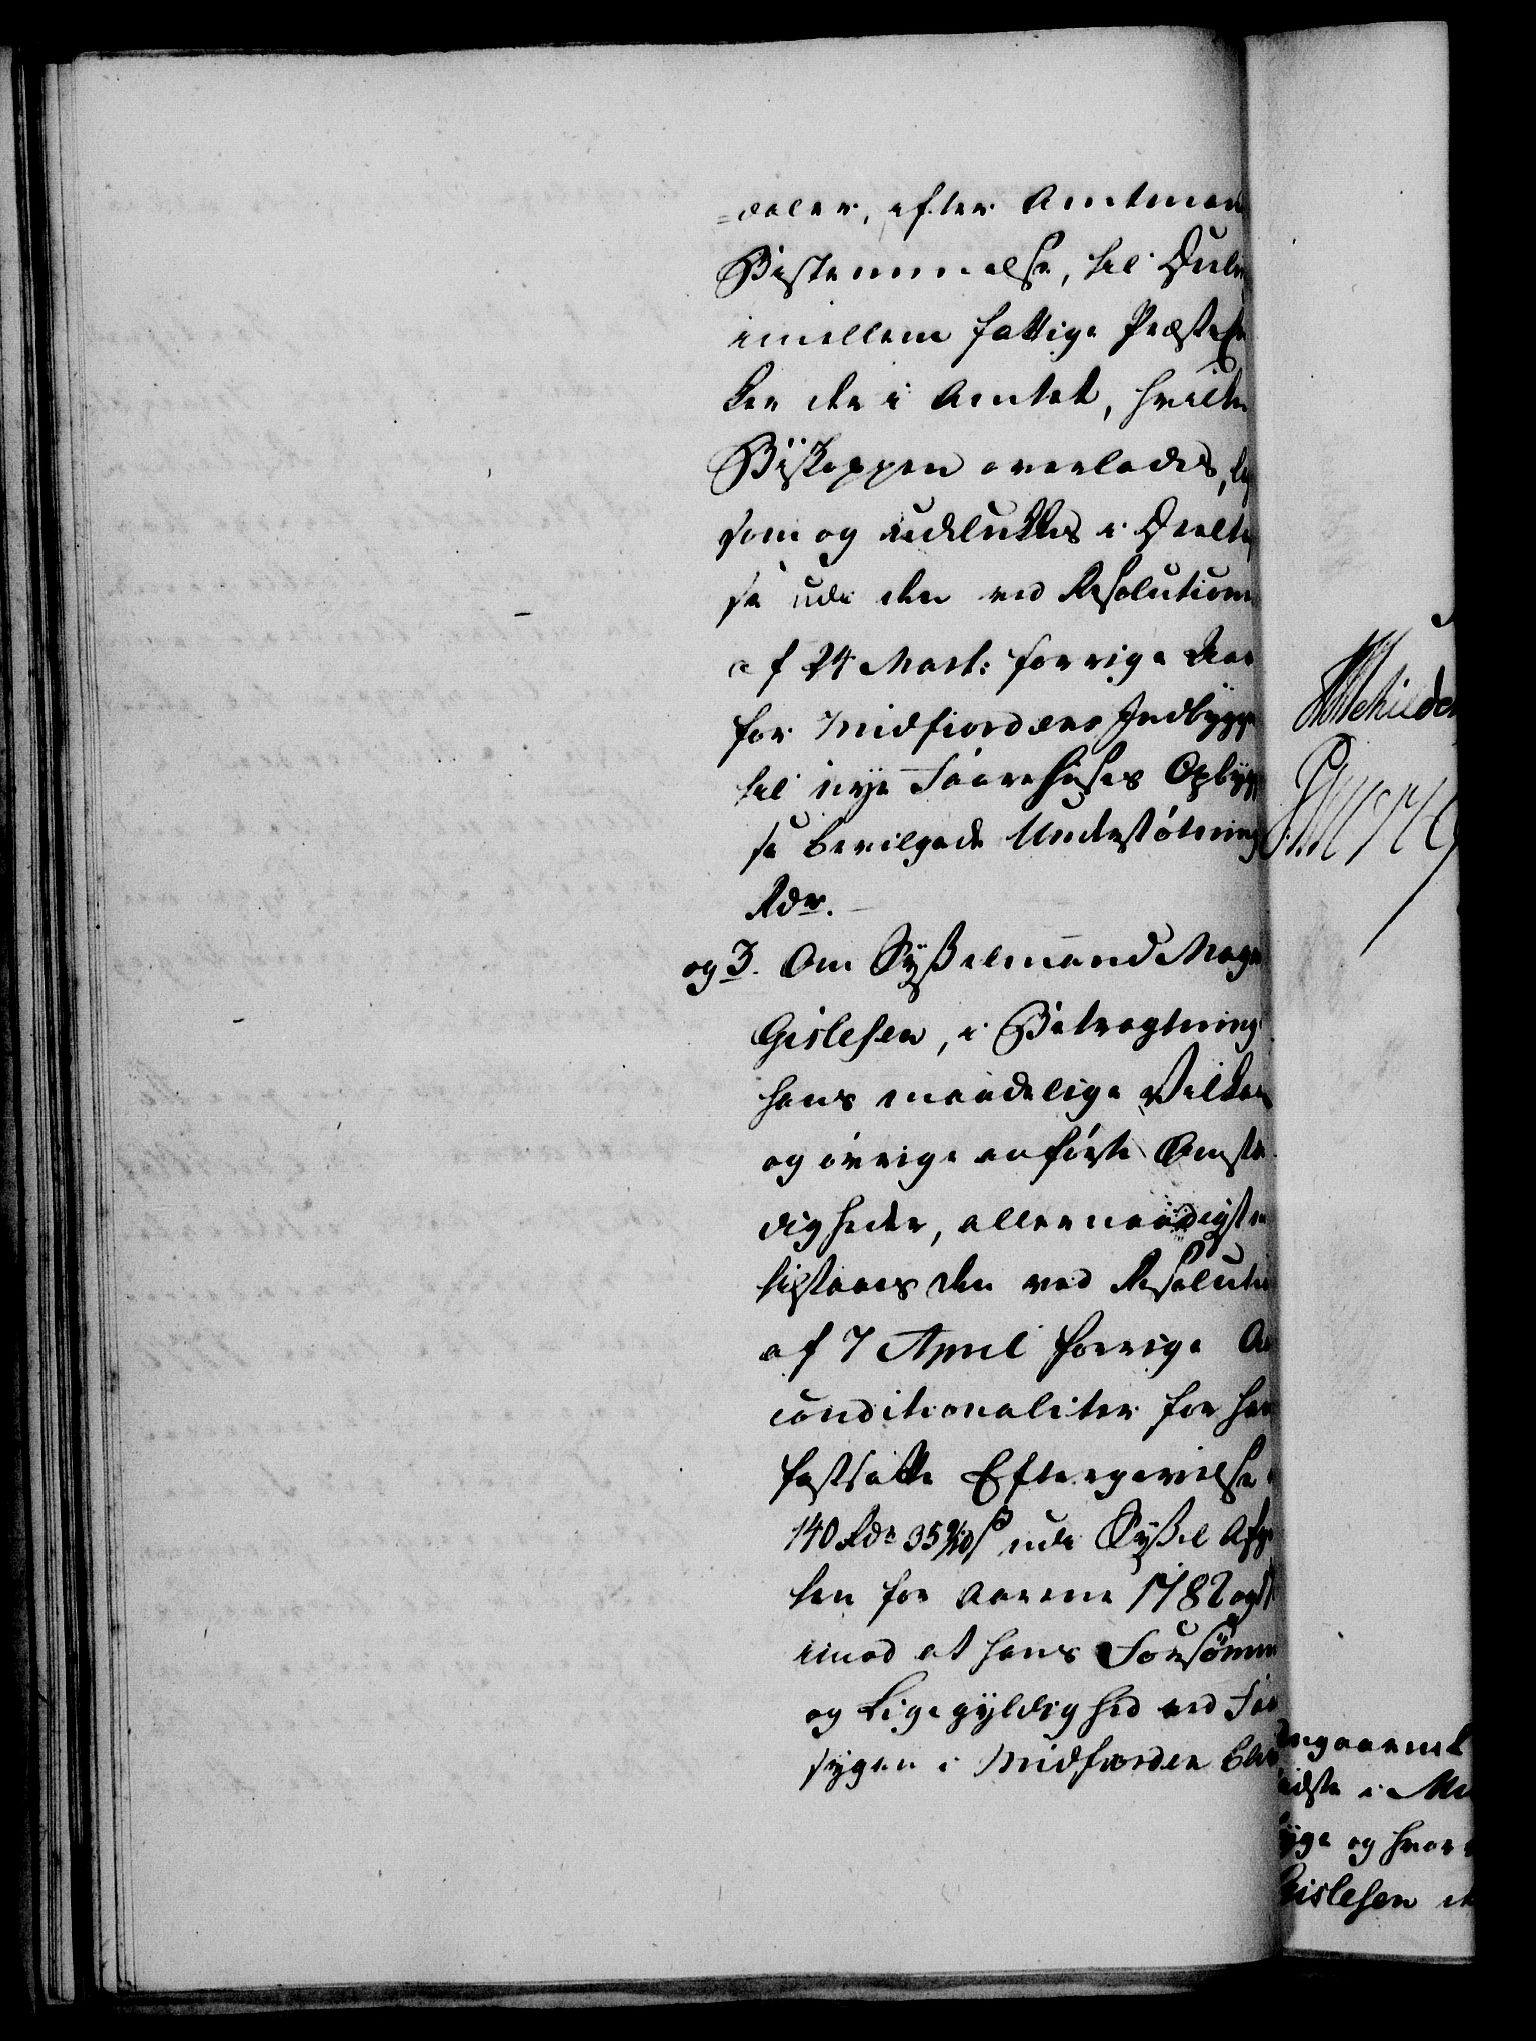 =daler, efter Amtman
Bestemmelse, til Dee
imellem fattige Præste
ker der i Amtet, hvilke
Biskoppen overlades, lig
som og udelukkes i Deelta
se udi den ved Resolution
af 24 Mart: forrige Aar
for Midfiordens Indbygge
til nye Faarehuses Opbyg
se bevilgede Understøtning
Rdr.
og 3. Om Sysselmand Magn
Gislesen, i Betragtning
hans maadelige Vilkaar
og øvrige anførte Omstæ
digheder, allernaadigst
tilstaaes den ved Resoluti
af 7 April forrige Aa
conditionaliter for ham
fastsatte Eftergivelse
140 Rdr 35 9/10 ß udi Syssel Afgi
ten for Aarene 1782 og
imod at hans Forsømm
og Ligegyldighed ved Faa
sygen i Midfiorden blev
Schilden
ngaaende
idste i Mi
yge og hvor
Gislesen